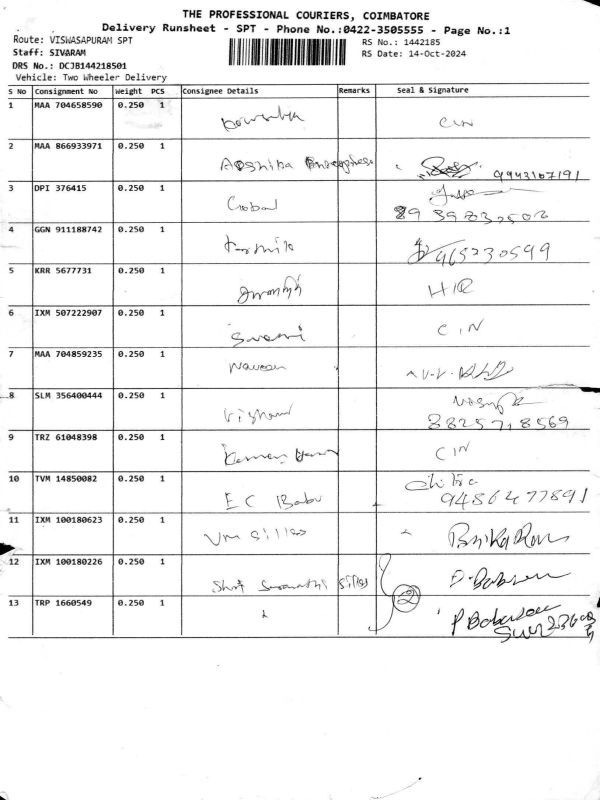 THE PROFESSIONAL COURIERS, COIMBATORE
Delivery Runsheet - SPT - Phone No.:0422-3505555 - Page No.:1
Route: VISWASAPURAM SPT
RS No.: 1442185
Staff: SIVARAM
RS Date: 14-Oct-2024
DRS No.: DCJB144218501
Vehicle: Two Wheeler Delivery
S No Consignment No Weight PCS Consignee Details Remarks Seal & Signature
1 MAA 704658590 0.250 1 CIN
2 MAA 866933971 0.250 1 9943167191
3 DPI 376415 0.250 1 Global
4 GGN 911188742 0.250 1
5 KRR 5677731 0.250 1
6 IXM 507222907 0.250 1 Swami CIN
7 MAA 704859235 0.250 1 Naveen
8 SLM 356400444 0.250 1
9 TRZ 61048398 0.250 1 CIN
10 TVM 14850082 0.250 1 EC Babu Chitra
9486477891
11 IXM 100180623 0.250 1 Vm Silks
12 IXM 100180226 0.250 1 Silks
2
13 TRP 1660549 0.250 1